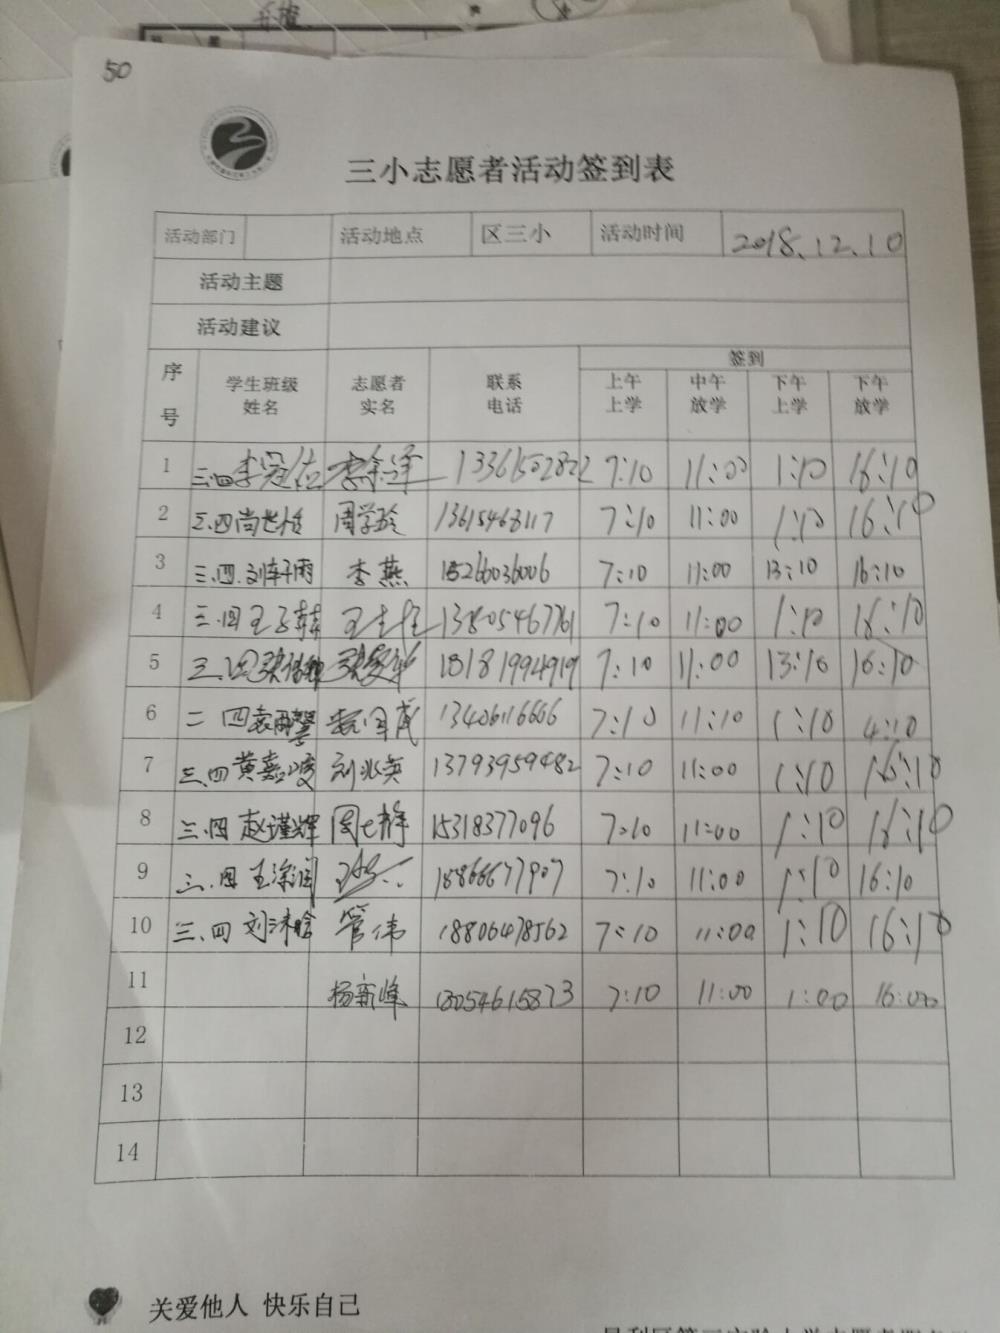 50
三小志愿者活动签到表
活动部门 活动地点 区三小 活动时间 2018.12.10
活动主题
活动建议
序号 学生班级姓名 志愿者实名 联系电话 签到
上午上学 中午放学 下午上学 下午放学
1 三.四 13361502822 7:10 11:00 1:10 16:10
2 三.四 周学玲 13615468117 7:10 11:00 1:10 16:10
3 三.四 刘轩雨 李燕 15266036006 7:10 11:00 13:10 16:10
4 三.四 13805467761 7:10 11:00 1:10 16:10
5 三.四 18181994919 7:10 11:00 13:10 16:10
6 二 四 13406116666 7:10 11:10 1:10 4:10
7 三.四 黄嘉峻 刘兆英 13793959482 7:10 11:00 1:10 16:10
8 三.四 赵瑾辉 15318377096 7:10 11:00 1:10 16:10
9 三.四 18866677907 7:10 11:00 1:10 16:10
10 三.四 刘沐晗 管伟 18806478562 7:10 11:00 1:10 16:10
11 杨新峰 18054615873 7:10 11:00 1:00 16:00
12
13
14
关爱他人 快乐自己